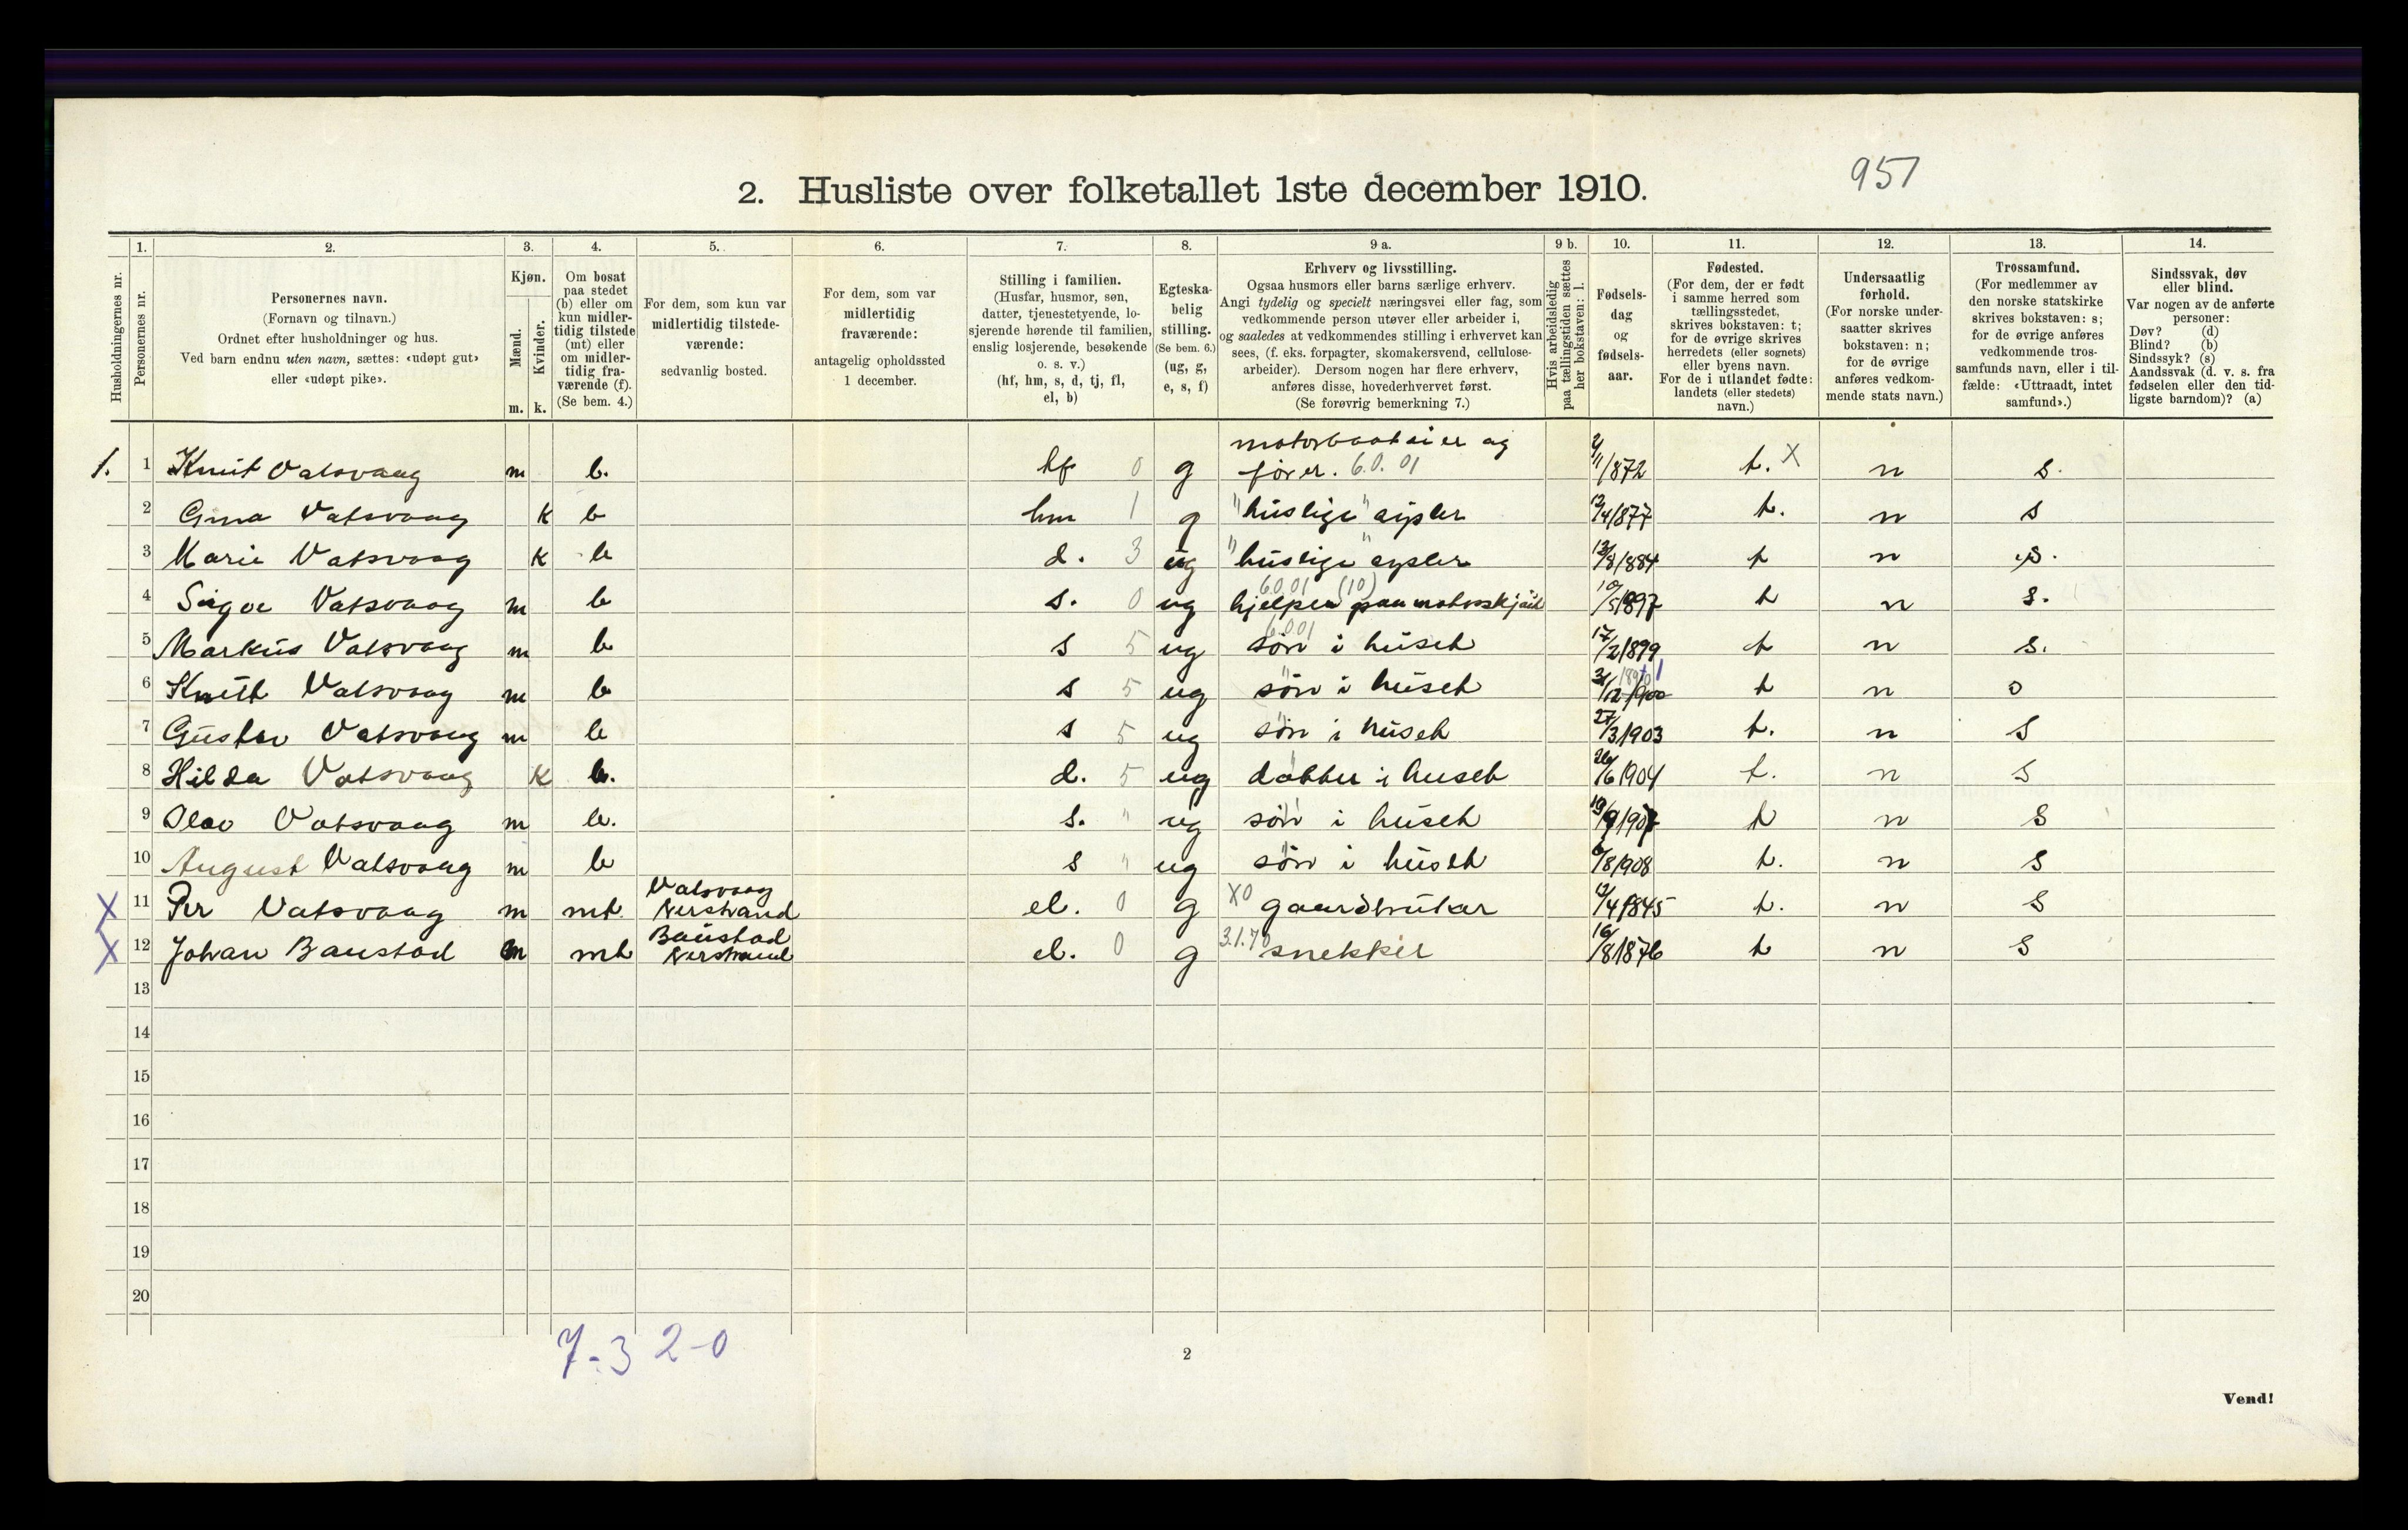 2. Husliste over folketallet 1ste december 1910.
951
Husholdningernes nr.
1.
Personernes nr.
2.
Personernes navn.
(Fornavn og tilnavn.)
Ordnet efter husholdninger og hus.
Ved barn endnu uten navn, sættes: «udøpt gut»
eller «udøpt pike».
3.
Kjøn.
Mænd.
Kvinder.
m. k.
4.
Om bosat
paa stedet
(b) eller om
kun midler-
tidig tilstede
(mt) eller
om midler-
tidig fra-
værende (f).
(Se bem. 4.)
5.
For dem, som kun var
midlertidig tilstede-
værende:
sedvanlig bosted.
6.
For dem, som var
midlertidig
fraværende:
antagelig opholdssted
1 december.
7.
Stilling i familien.
(Husfar, husmor, søn,
datter, tjenestetyende, lo-
sjerende hørende til familien,
enslig losjerende, besøkende
o. s. v.)
(hf, hm, s, d, tj, fl,
el, b)
8.
Egteska-
belig
stilling.
(Se bem. 6.)
(ug, g,
e, s, f)
9 a.
Erhverv og livsstilling.
Ogsaa husmors eller barns særlige erhverv.
Angi tydelig og specielt næringsvei eller fag, som
vedkommende person utøver eller arbeider i,
og saaledes at vedkommendes stilling i erhvervet kan
sees, (f. eks. forpagter, skomakersvend, cellulose-
arbeider). Dersom nogen har flere erhverv,
anføres disse, hovederhvervet først.
(Se forøvrig bemerkning 7.)
9 b.
Hvis arbeidsledig
paa tællingstiden sættes
her bokstaven: l.
10.
Fødsels-
dag
og
fødsels-
aar.
11.
Fødested.
(For dem, der er født
i samme herred som
tællingsstedet,
skrives bokstaven: t;
for de øvrige skrives
herredets (eller sognets)
eller byens navn.
For de i utlandet fødte:
landets (eller stedets)
navn.)
12.
Undersaatlig
forhold.
(For norske under-
saatter skrives
bokstaven: n;
for de øvrige
anføres vedkom-
mende stats navn.)
13.
Trossamfund.
(For medlemmer av
den norske statskirke
skrives bokstaven: s;
for de øvrige anføres
vedkommende tros-
samfunds navn, eller i til-
fælde: «Uttraadt, intet
samfund».)
14.
Sindssvak, døv
eller blind.
Var nogen av de anførte
personer:
Døv? (d)
Blind? (b)
Sindssyk? (s)
Aandssvak (d. v. s. fra
fødselen eller den tid-
ligste barndom)? (a)
1. 1 Knut Vatsvaag m b. hf 0 g motorbaateier og fører. 6.0.01 /11/872 t. X n s.
2 Gina Vatsvaag k b hm 1 g "huslige" sysler /4/877 t. n s
3 Marie Vatsvaag k b d. 3 ug "huslige" sysler 13/8/884 t n s.
4 Sigve Vatsvaag m b s. 0 ug hjelper paa 6.0.01 (10) 10/5/897 t n s.
5 Markus Vatsvaag m b s 5 ug søn i huset 6.0.01 17/2/899 t n s.
6 Knut Vatsvaag m b s 5 ug søn i huset 31/12/900 t n s
7 Gustav Vatsvaag m b s 5 ug søn i huset 27/3/1903 t. n s
8 Hilda Vatsvaag k b. d. 5 ug datter i huset 26/6/1904 t. n s
9 Olav Vatsvaag m b. s. " ug søn i huset 19/9/1907 t n s
10 August Vatsvaag m b s " ug søn i huset 6/8/908 t. n s
X 11 Per Vatsvaag m mt. Vatsvaag Nerstrand el. 0 g X0 gaardbruker /4/1845 t. n s
X 12 Johan Baustad m mt Baustad Nerstrand el. 0 g 3.1.70 snekker 16/8/1876 t n s
13
14
15
16
17
18
19
20
7-3 2-0
2
Vend!